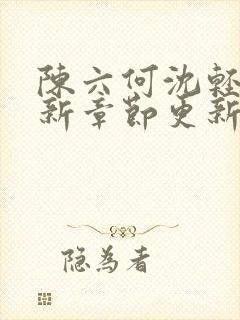 陳六何沈輕
新章節更新
隐为者